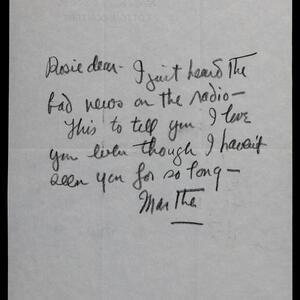 Rosie dear - I just heard the
bad news on the radio -
This to tell you I love
you even though I haven't
seen you for so long -
Martha